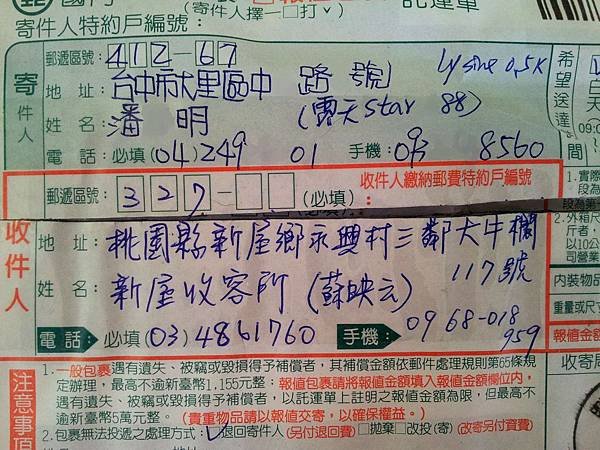 (寄件人擇一□打ˇ)
寄件人特約戶編號:
寄件人
郵遞區號: 412-67
地 址: 台中市大里區中 路 號
Lysine 0.5K
姓 名: 潘 明 (露天star 88)
電 話: 必填(04)249 01 手機: 09 8560
希望送達
間
郵遞區號: 327-□□(必填)
收件人繳納郵費特約戶編號:
收件人
地 址: 桃園縣新屋鄉永興村三鄰大牛欄
117號
姓 名: 新屋收容所(蘇映云)
電 話: 必填(03)4861760 手機: 0968-018
959
內裝物品
重量或尺寸
報值金額
收寄局
注意事項
1.一般包裹遇有遺失、被竊或毀損得予補償者,其補償金額依郵件處理規則第65條規
定辦理,最高不逾新臺幣1,155元整;報值包裹請將報值金額填入報值金額欄位內,
遇有遺失、被竊或毀損得予補償者,以託運單上註明之報值金額為限,但最高不
逾新臺幣5萬元整。(貴重物品請以報值交寄,以確保權益。)
2.包裹無法投遞之處理方式:☑退回寄件人(另付退回費)□拋棄□改投(寄)(改寄另付資費)